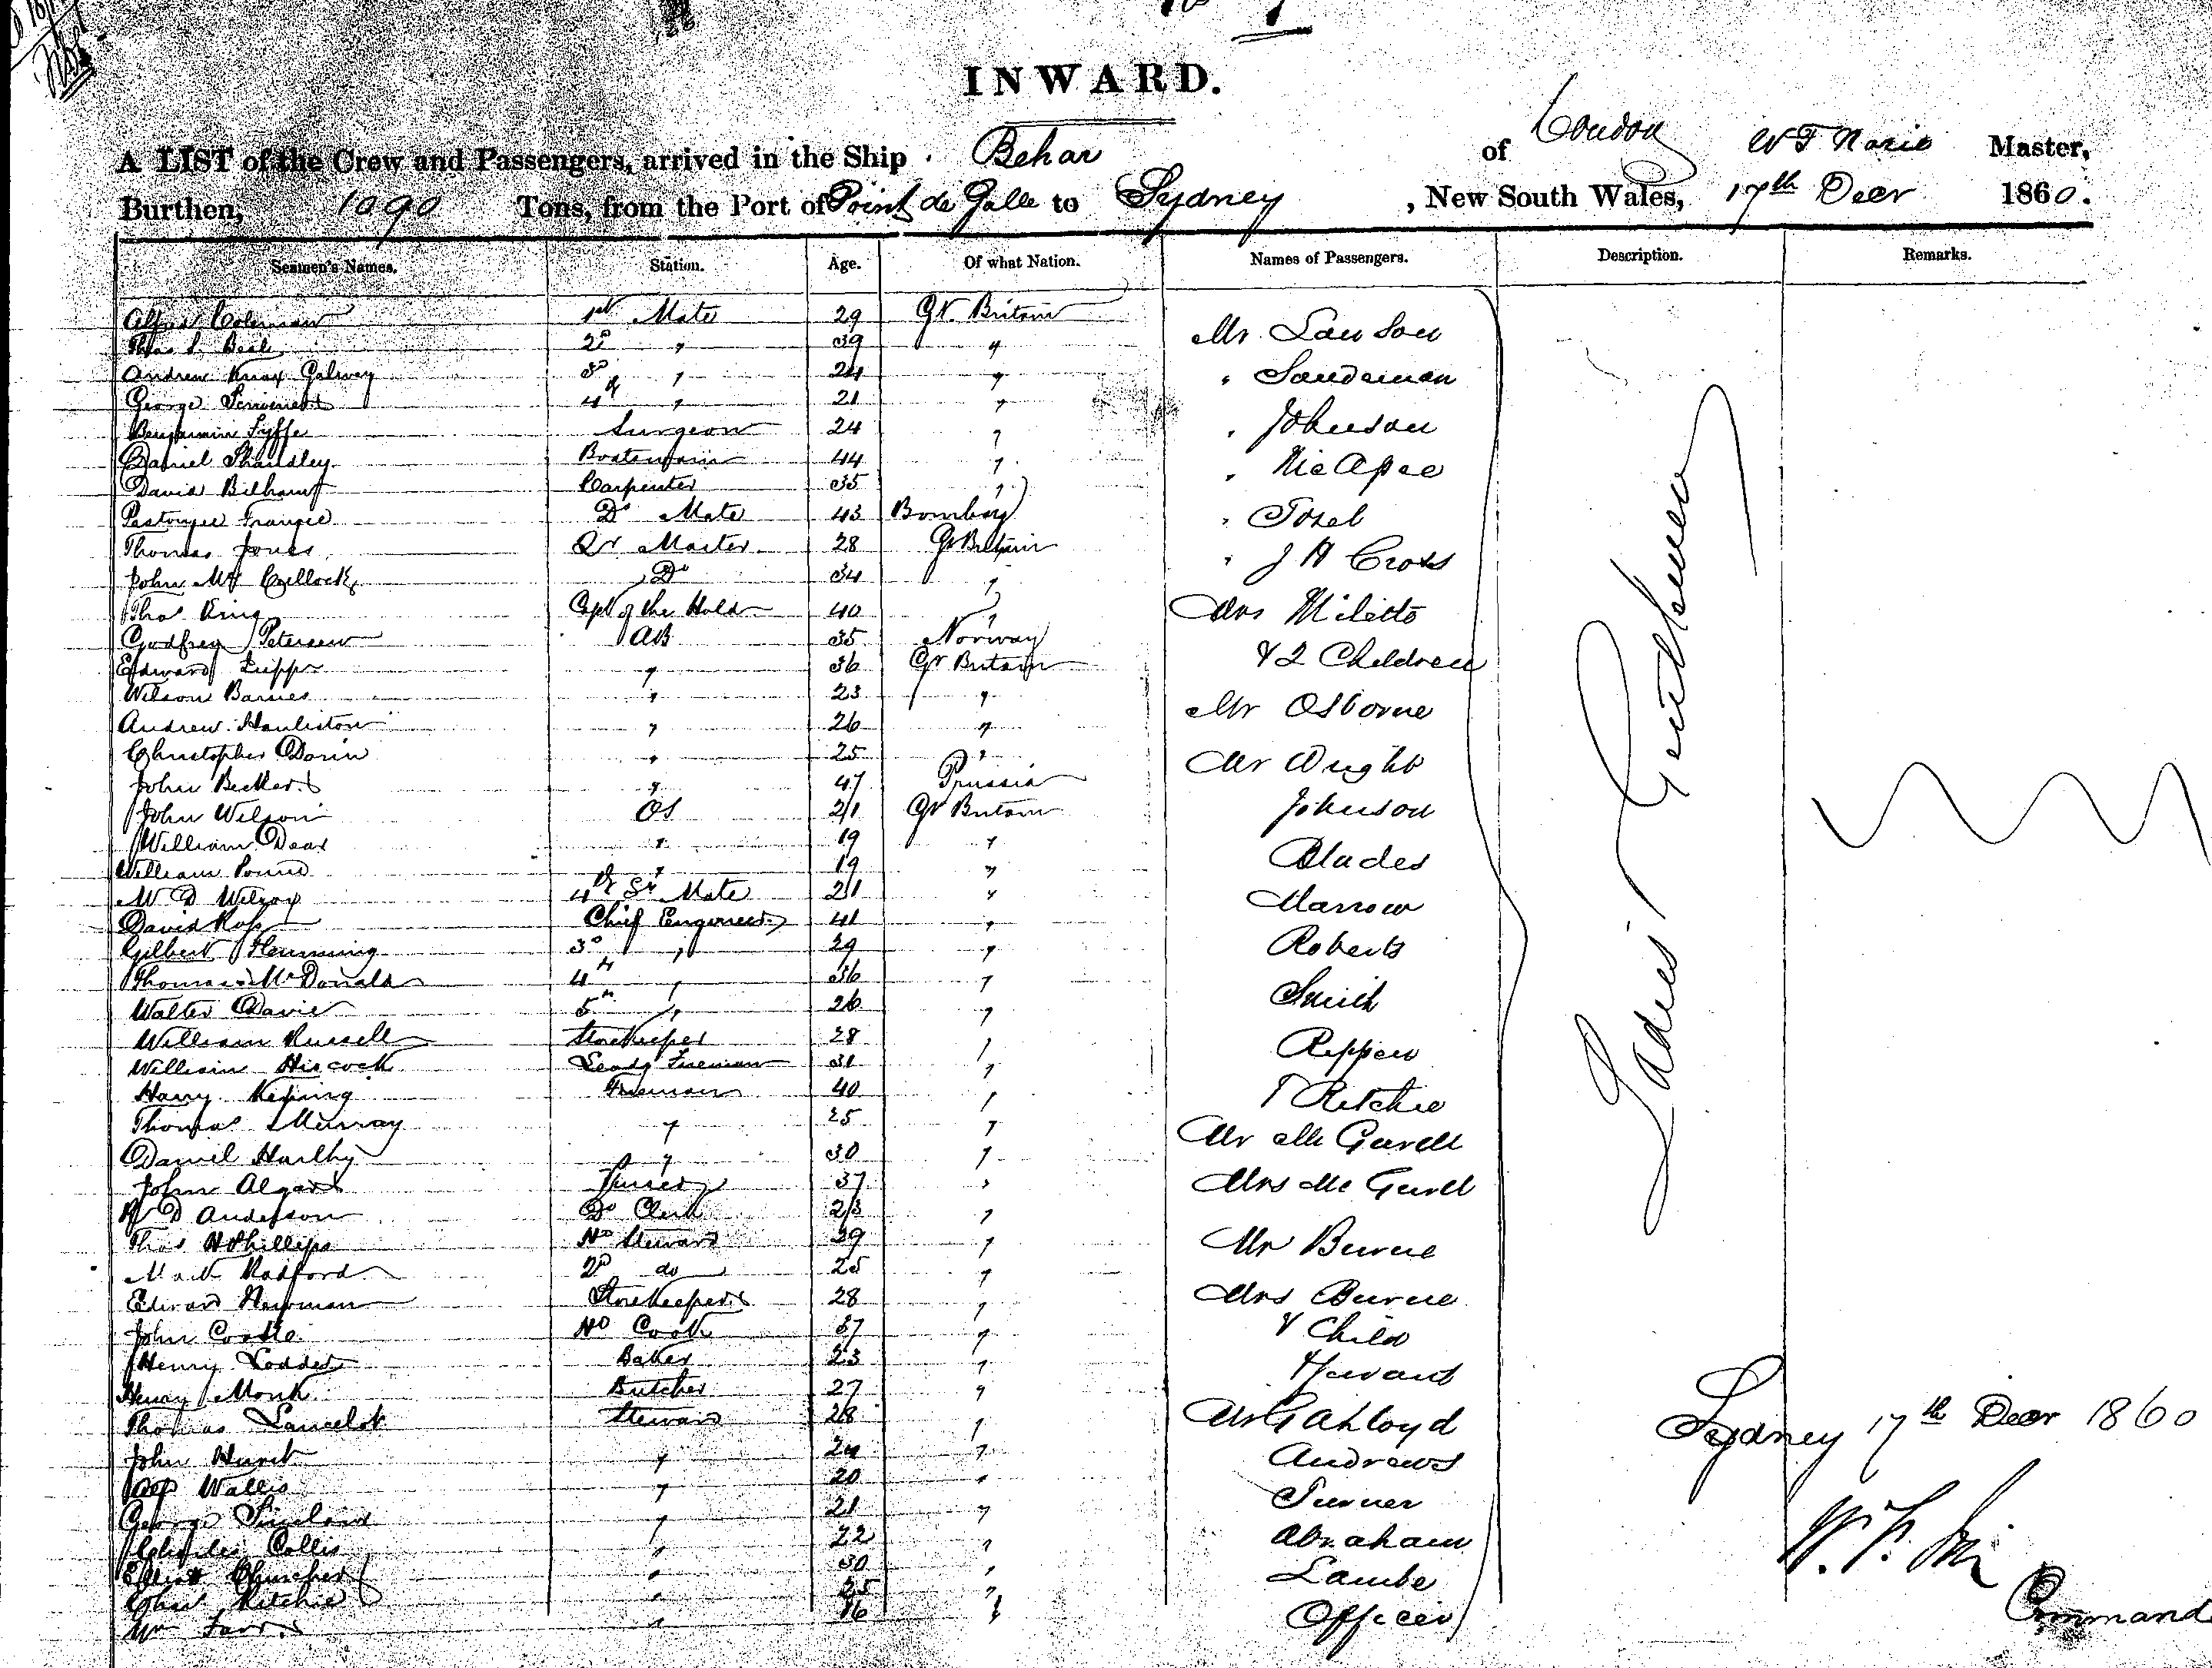 INWARD.
A LIST of the Crew and Passengers, arrived in the Ship Behar of London W F Norie Master,
Burthen, 1090 Tons, from the Port of Point de Galle to Sydney, New South Wales, 17th Decr 1860.
Seamen's Names. Station. Age. Of what Nation. Names of Passengers. Description. Remarks.
Alfred Coleman 1st Mate 29 Gt. Britain
Thos S. Beale 2d " 39 "
Andrew Knox Galwey 3d " 24 "
George 4th " 21 "
Benjamin Fyffe Surgeon 24 "
Daniel Shandley Boatswain 44 "
David Carpenter 35 "
Do Mate 43 Bombay
Thomas Jones Qr Master 28 Gt Britain
John Do 34 "
Thos King Capt of the Hold 40 "
Godfrey Petersen AB 35 Norway
Edward " 36 Gt Britain
Wilson Barnes " 23 "
Andrew " 26 "
Christopher " 25 "
John Becker " 47 Prussia
John Wilson OS 21 Gt Britain
William Dear " 19 "
William " 19 "
W D Wilcox 4th Mate 21 "
David Ross Chief Engineer 41 "
Gilbert Hemming 3d " 29 "
Thomas McDonald 4th " 36 "
Walter Davie 5th " 26 "
William Russell Storekeeper 28 "
William Hiscock Leadg Fireman 31 "
Harry Fireman 40 "
Thomas Murray " 25 "
Daniel " 30 "
John Algar Purser 37 "
D Anderson Do Clerk 23 "
Thos H Phillips Hd Steward 39 "
Radford 2d do 25 "
Edward Newman Storekeeper 28 "
John Hd Cook 37 "
Henry Baker 23 "
Henry Monk Butcher 27 "
Thomas Lancelot Steward 28 "
John Hurst " 24 "
Wallis " 20 "
George " 21 "
Charles Collis " 22 "
Elliott Churcher " 30 "
Ritchie " 25 "
Wm " 16 "
Mr Lawson
" Sandeman
" Johnson
" McAfee
"
" J H Cross
Mrs
& 2 Children
Mr Osborne
Mr Wright
Johnson
Blades
Marrow
Roberts
Smith
Rippen
T Ritchie
Mr
Mrs
Mr Burne
Mrs Burne
& Child
& Servant
Mr G A Lloyd
Andrews
Turner
Abraham
Lambe
Officer
Ladies & Gentlemen
Sydney 17th Decr 1860
W. F.
Command